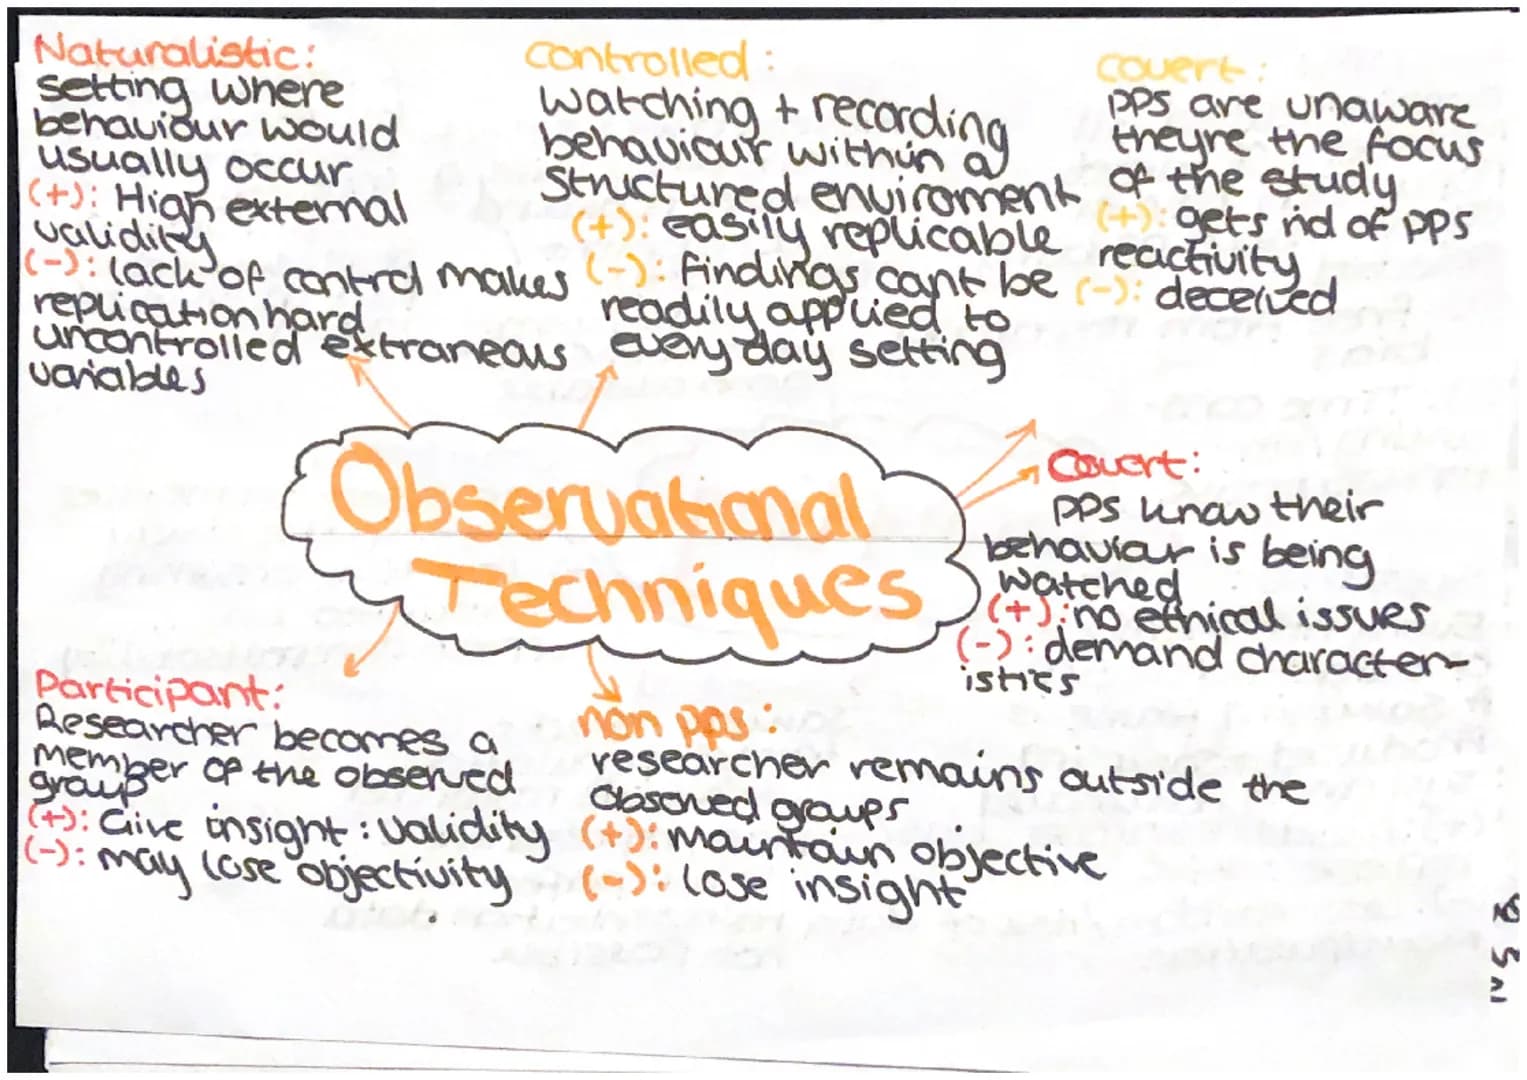 Naturalistic:
setting where
behaviour would
usually occur
(+): High external
validity
(-): lack of control makes
replication hard
uncontrolled extraneous
variables
controlled:
watching + recording
behaviour within a
structured enviroment
(+): easily replicable
(-): findings cant be
readily applied to
every day setting
covert:
pps are unaware
theyre the focus
of the study
(+): gets rid of pps
reactivity
(-): deceived
Observational
Techniques
Covert:
pps know their
behaviour is being
watched
(+): no ethical issues
(-): demand character-
istics
Participant:
Researcher becomes a
member of the observed
group
(+): Give insight : validity
(-): may lose objectivity
non pps:
researcher remains outside the
observed groups
(+): maintain objective
(-): lose insight